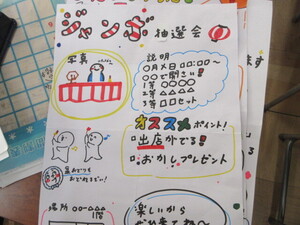 ジャンボ抽選会
写真
説明
〇月〆日 〇〇:〇〇~
〇〇で開さい!
1等 〇〇〇〇
2等 △△△△
3等 ロロセット
オススメポイント!
・出店がでる!
・おかしプレゼント
場所 〇〇-△△△
楽しいから